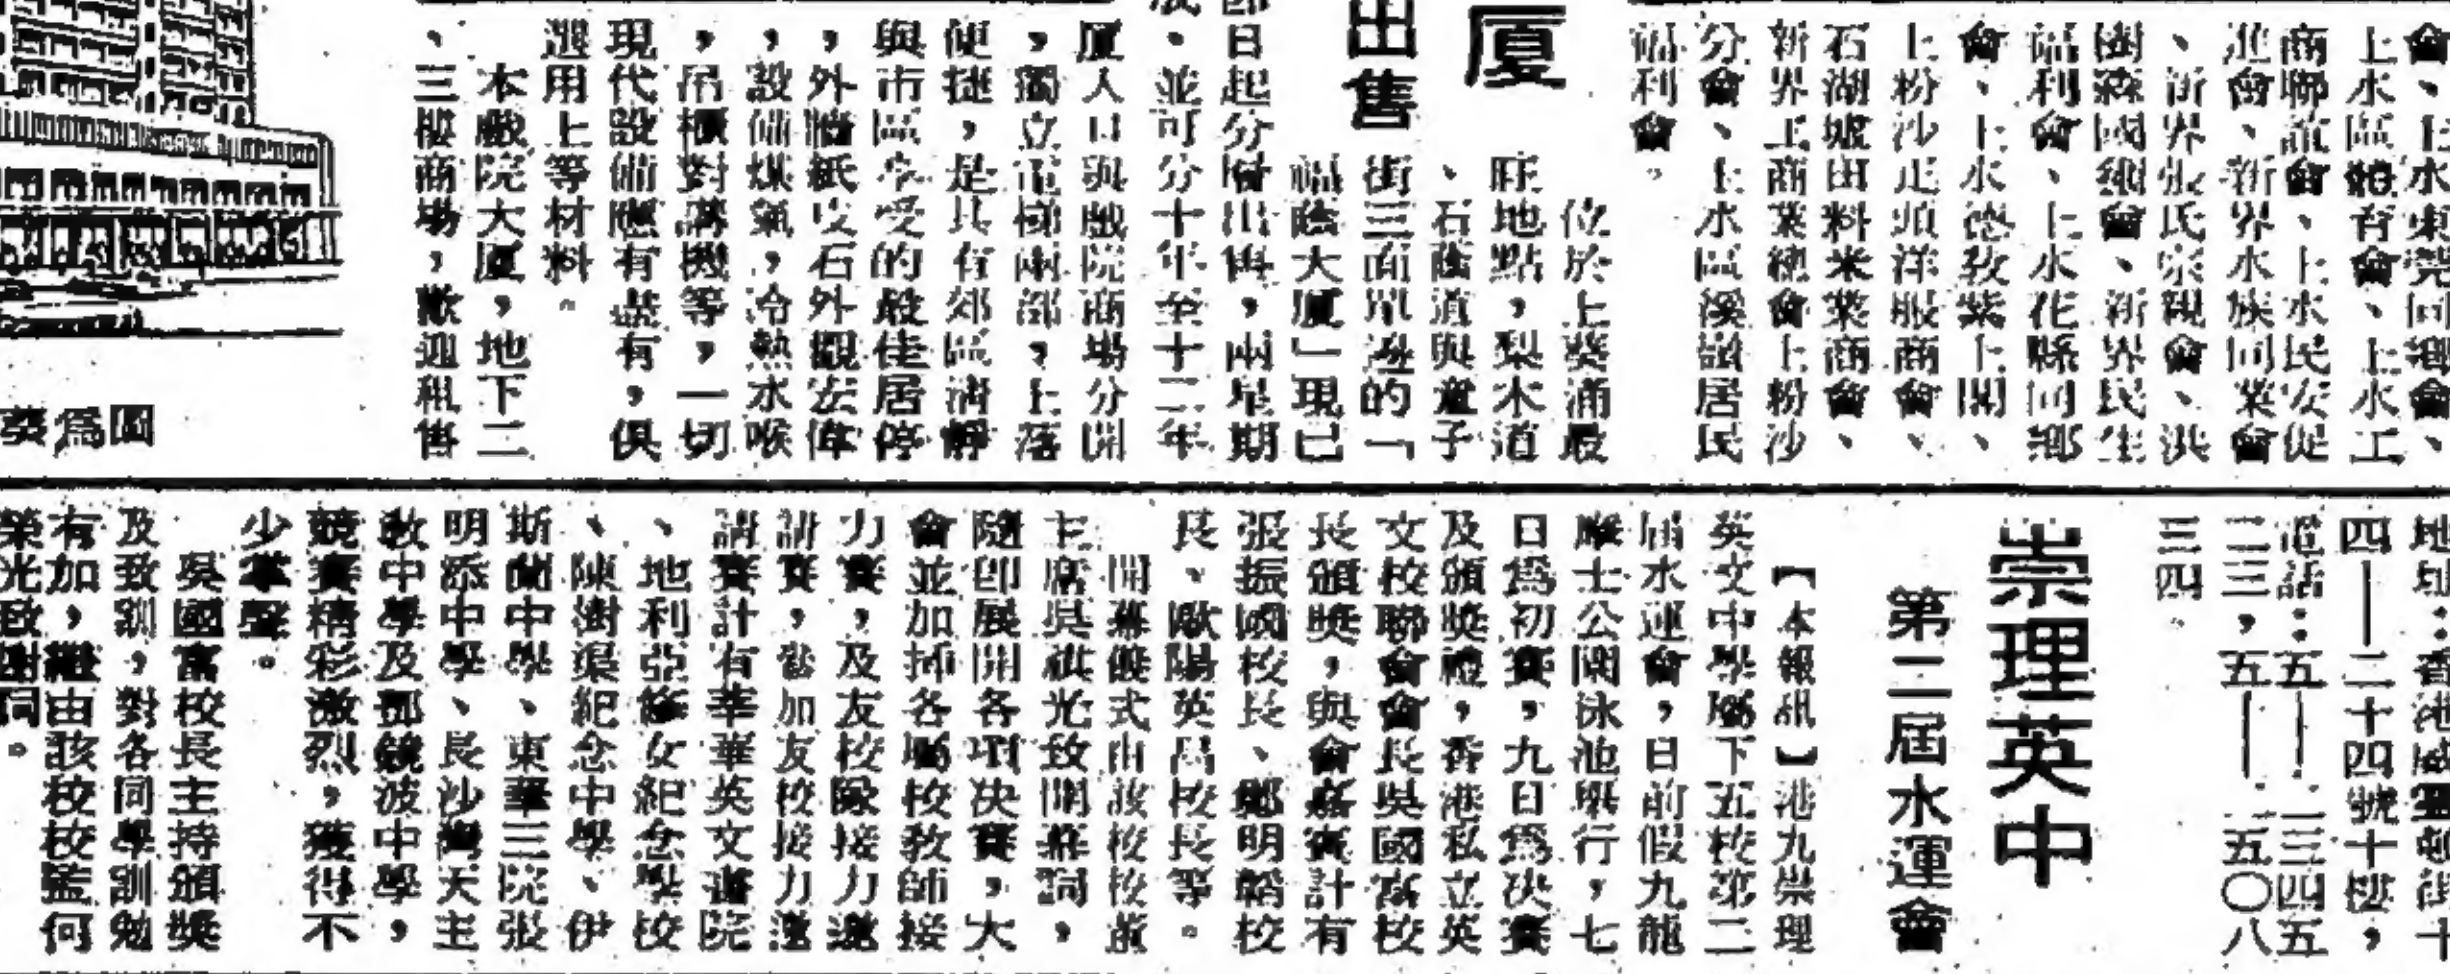 會、上水東莞同鄉會、
上水區體育會、上水工
商聯誼會、上水民安促
進會、新界水族同業會
、新界張氏宗親會、洪
樹森國術會、新界民生
福利會、上水花縣同鄉
會、上水德教紫上閣、
上粉沙疋頭洋服商會、
石湖墟田料米業商會、
新界工商業總會上粉沙
分會、上水區溪邊居民
福利會。
廈
出售
位於上葵涌最
旺地點，梨木道
、石蔭道與童子
街三面單邊的「
福蔭大廈」現已
日起分層出售，兩星期
，並可分十年至十二年
廈入口與戲院商場分開
，獨立電梯兩部，上落
便捷，是具有郊區清靜
與市區享受的最佳居停
，外牆紙皮石外觀宏偉
，設備煤氣，冷熱水喉
，吊櫃對講機等，一切
現代設備應有盡有，俱
選用上等材料。
本戲院大廈，地下二
、三樓商場，歡迎租售
圖為葵
地址：香港威靈頓街十
四——二十四號十樓，
電話：五——二三四五
二三，五——二五〇八
三四。
崇理英中
第二屆水運會
【本報訊】港九崇理
英文中學屬下五校第二
屆水運會，日前假九龍
摩士公園泳池舉行，七
日為初賽，九日為決賽
及頒獎禮，香港私立英
文校聯會會長吳國富校
長頒獎，與會嘉賓計有
張振國校長、鄭明韜校
長、歐陽英昌校長等。
開幕儀式由該校校董
主席吳祺光致開幕詞，
隨即展開各項決賽，大
會並加插各屬校教師接
力賽，及友校隊接力邀
請賽，當加友校接力邀
請賽計有華英文書院
、地利亞修女紀念學校
、陳樹渠紀念中學、伊
斯蘭中學、東華三院張
明添中學、長沙灣天主
教中學及鄧鏡波中學，
競賽精彩激烈，獲得不
少掌聲。
吳國富校長主持頒獎
及致訓，對各同學訓勉
有加，繼由該校校監何
榮光致謝詞。